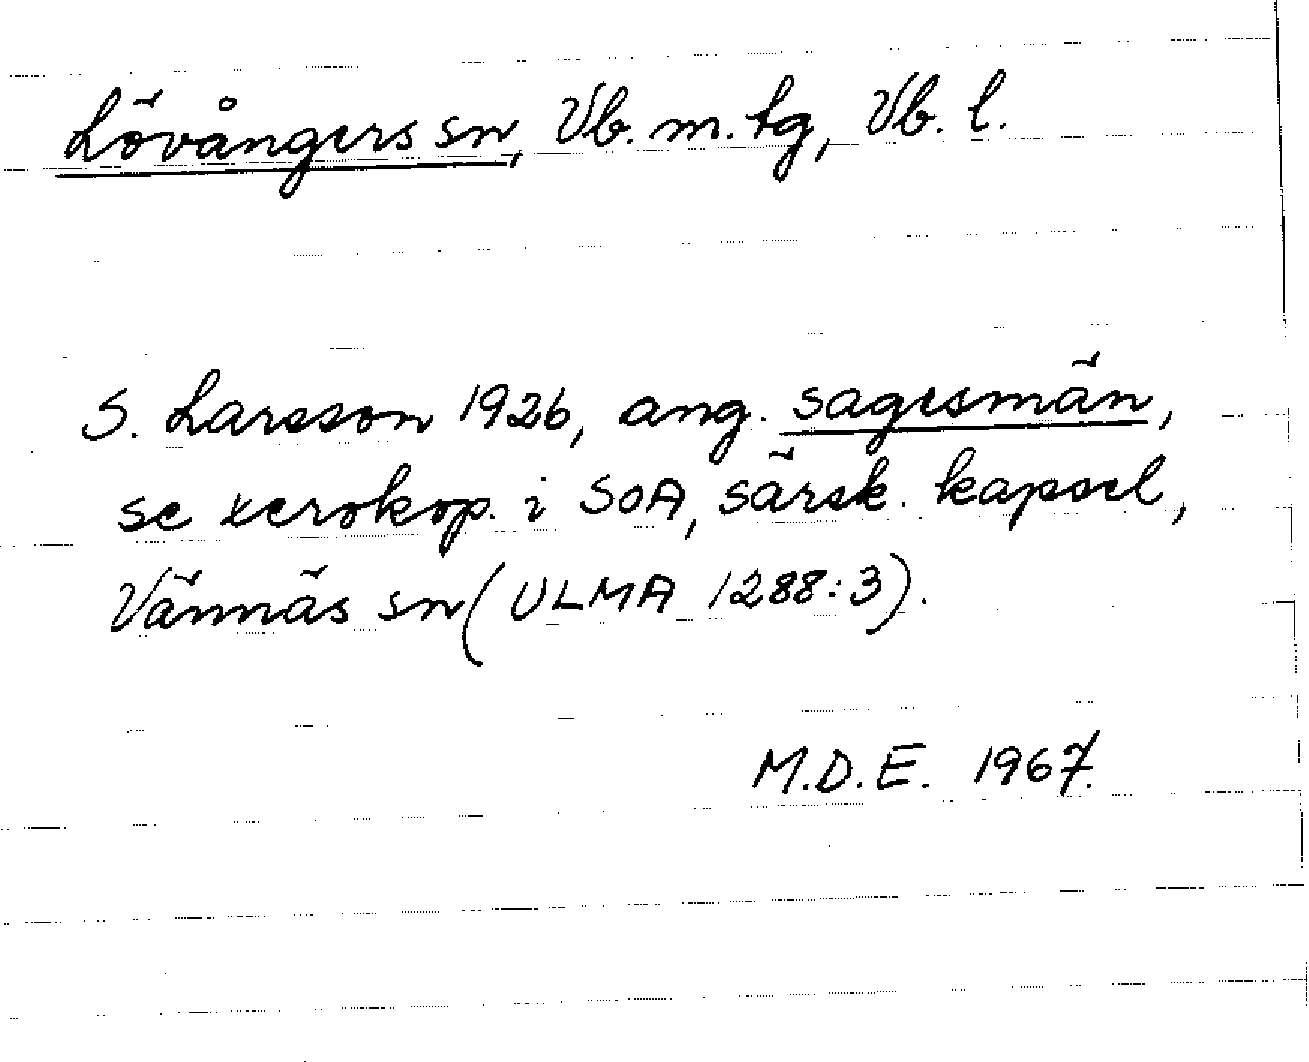 Lövångers sn, Vb. m. tg, Vb. l.
S. Larsson 1926, ang. sagesmän,
se xerokop. i SOA, särsk. kapsel,
Vännäs sn (ULMA 1288:3).
M.D.E. 1967.